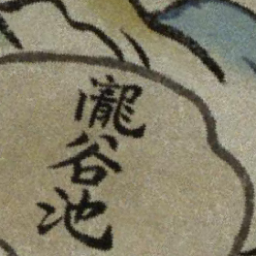 瀧谷池